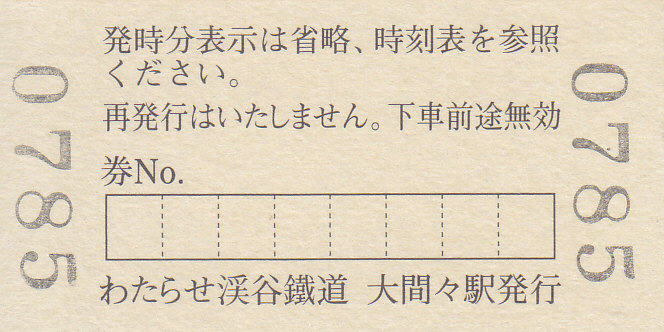 発時分表示は省略、時刻表を参照
ください。
再発行はいたしません。下車前途無効
券No.
わたらせ渓谷鐵道 大間々駅発行
0785
0785